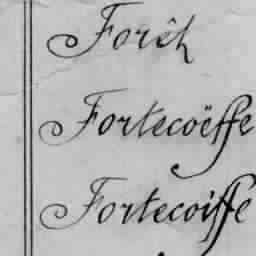 Forêt
Fortecoëffe
Fortecoiffe